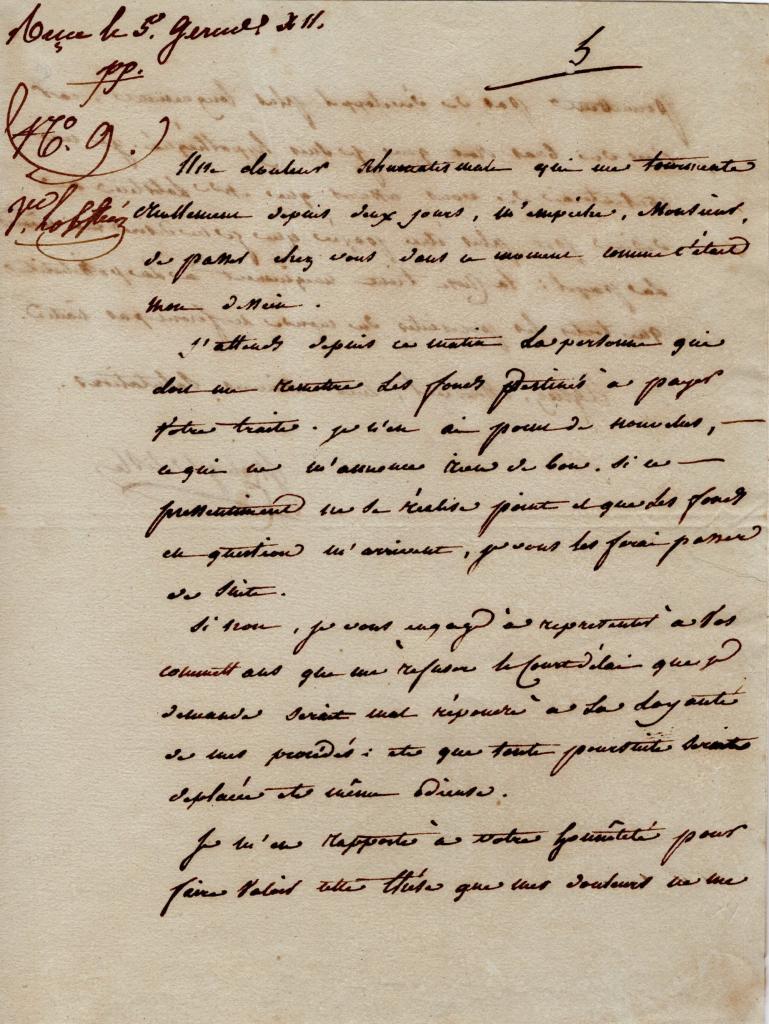 le 5. Germ.l XII.
5
pp.
N.o 9.
Une douleur Rhumatismale qui me tourmente
cruellement depuis deux jours, m'empêche, Monsieur,
de passer chez vous dans ce moment comme c'était
mon dessein.
J'attends depuis ce matin La personne qui
doit me remettre Les fonds Destinés a payer
Votre traite. je n'en ai point de nouvelles, —
ce qui ne m'annonce rien de bon. Si ce —
pressentiment ne se réalise point et que Les fonds
en question m'arrivent, je vous les ferai passer
de suite.
Si non, je vous engage à representer a Vos
commettans que me refuser le Court délai que je
demande serait mal répondre a La Loyauté
de mes procédés: et que toute poursuite serait
deplacée et même odieuse.
Je m'en rapporte à votre honnêteté pour
faire Valoir cette thése que mes douleurs ne me